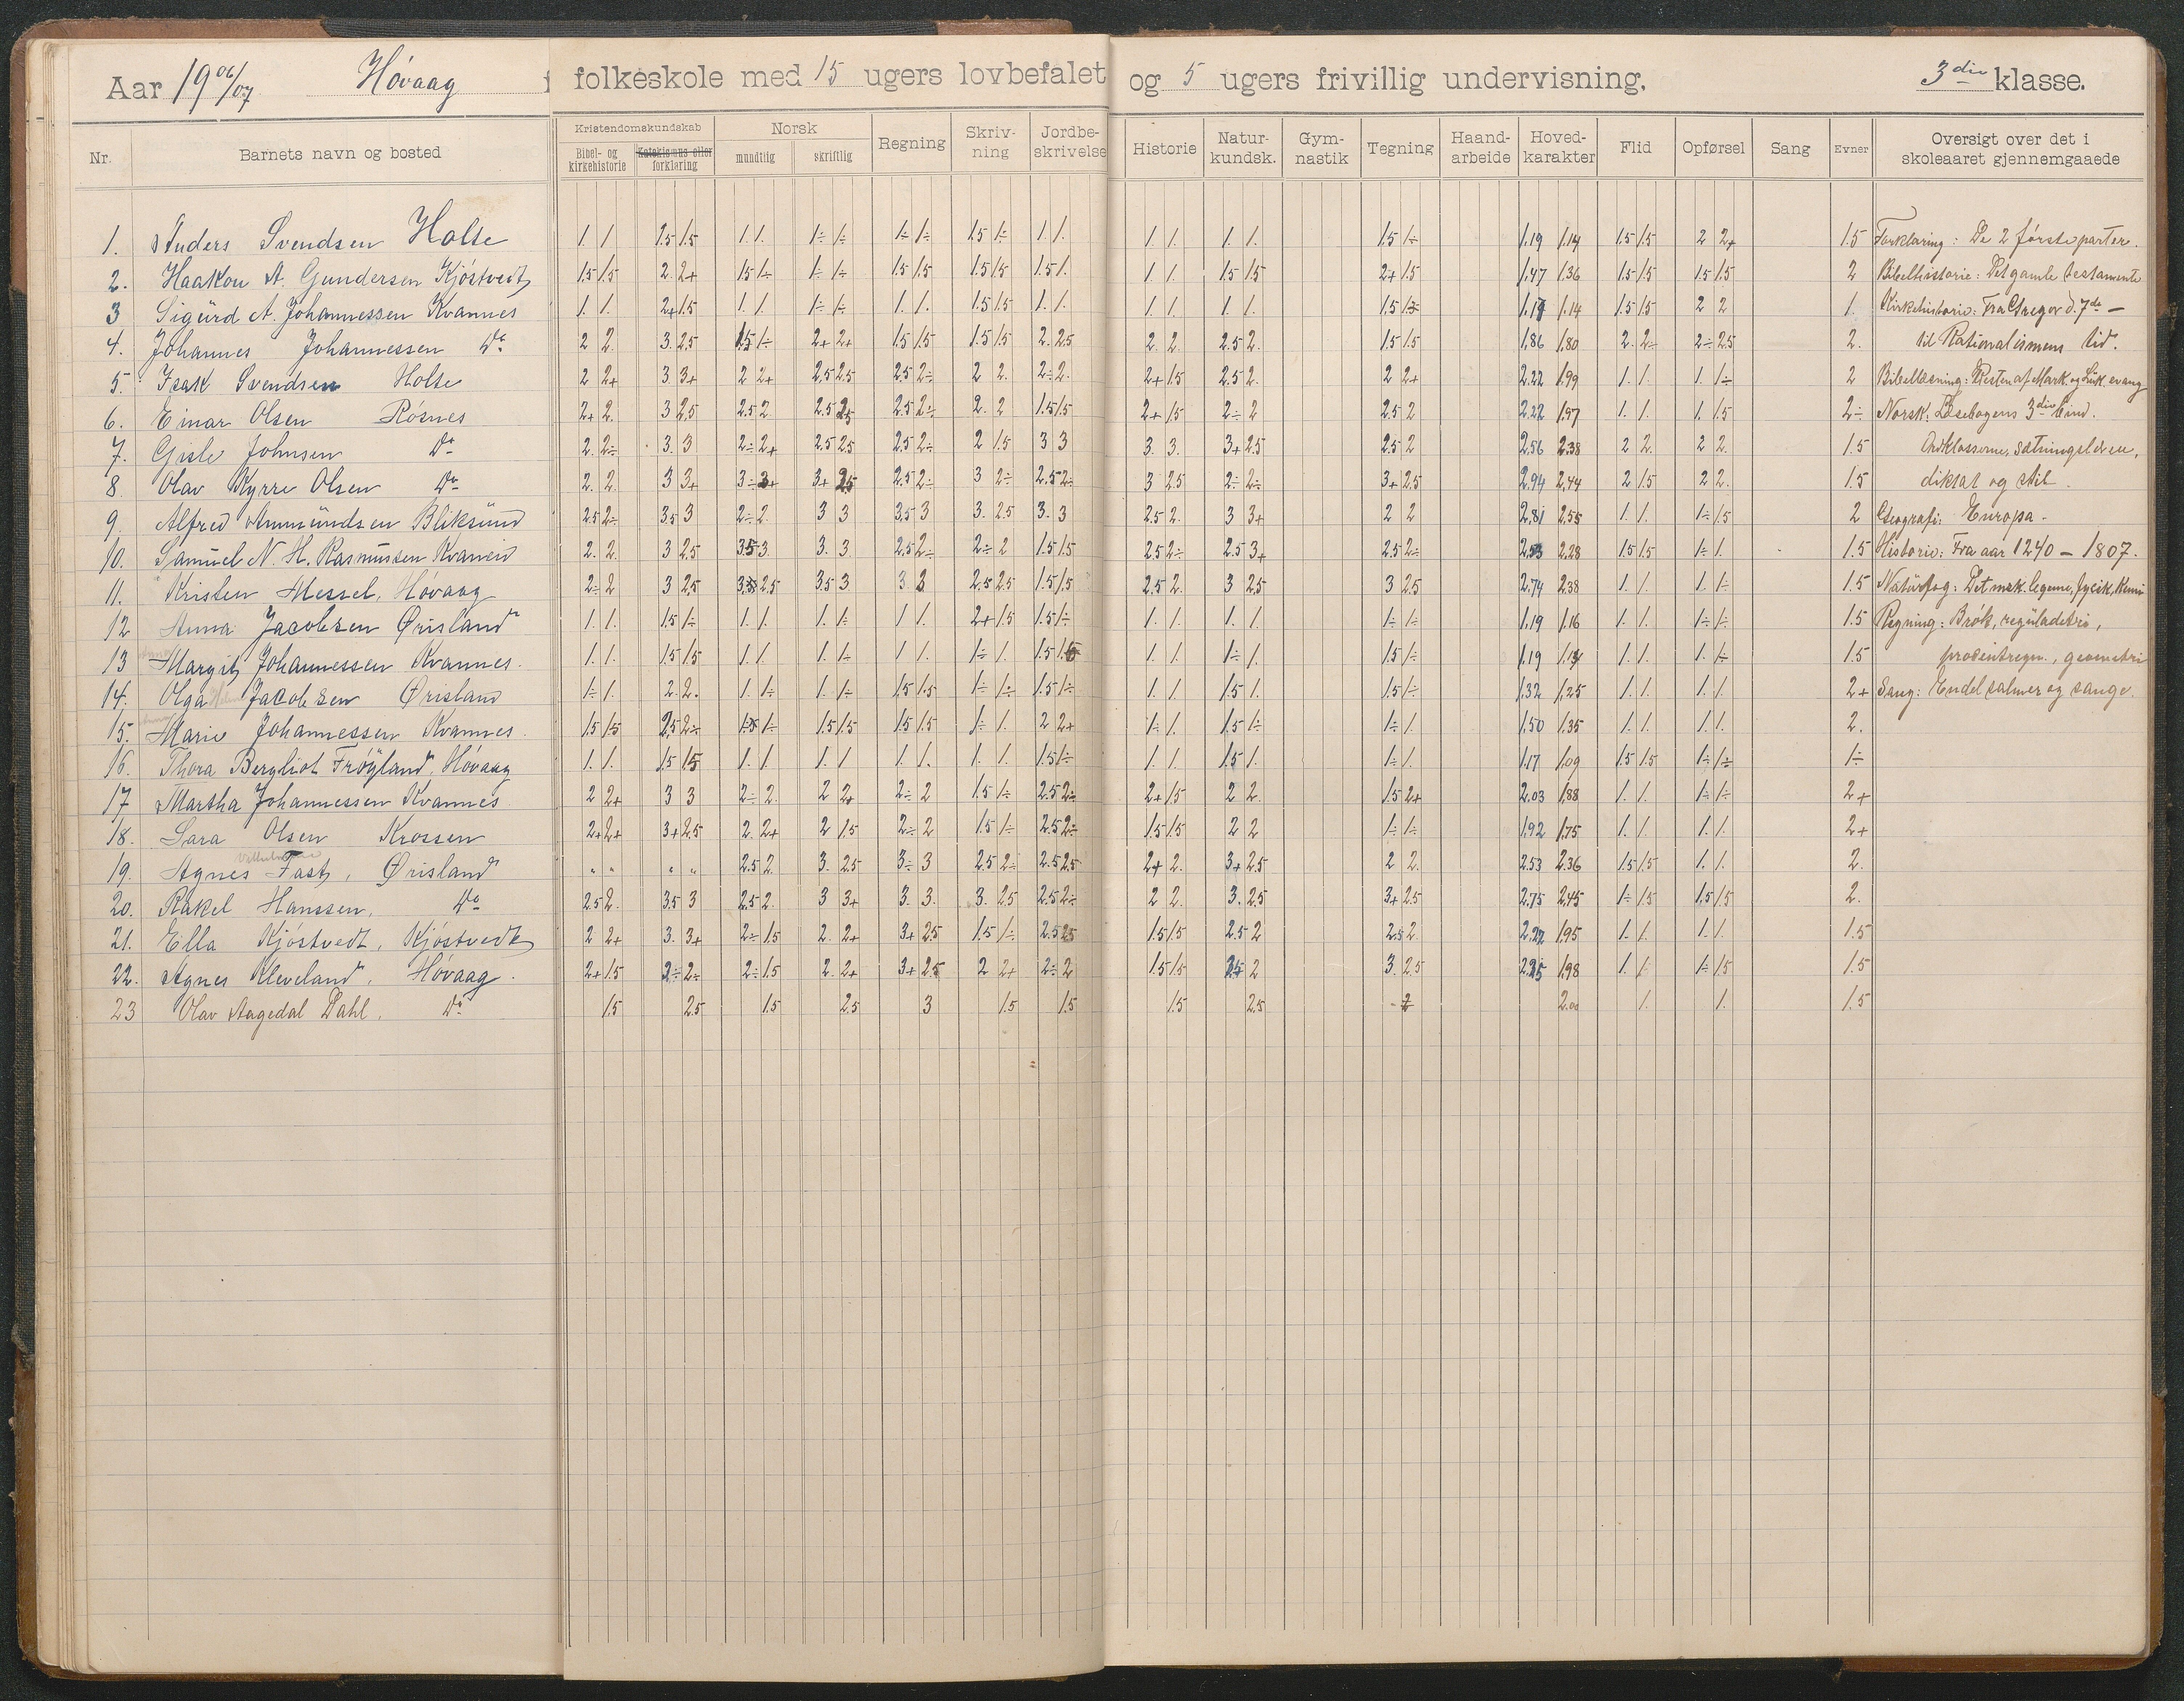 Aar 1906/07 Høvaag folkeskole med 15 ugers lovbefalet og 5 ugers frivillig undervisning. 3die klasse.
Nr. Barnets navn og bosted Kristendomskundskab Norsk Regning Skriv-ning Jordbe-skrivelse Historie Natur-kundsk. Gym-nastik Tegning Haand-arbeide Hoved-karakter Flid Opførsel Sang Evner Oversigt over det i skoleaaret gjennemgaaede
Bibel- og kirkehistorie Katekismus eller forklaring mundtlig skriftlig
1. Anders Svendsen Holte 1. 1 1.5 1.5 1. 1. 1÷ 1÷ 1÷ 1÷ 1.5 1÷ 1. 1. 1. 1. 1. 1. 1.5 1÷ 1.19 1.14 1.5 1.5 2 2+ 1.5 Forklaring: De 2 første parter.
2. Haakon A. Gundersen Kjøstvedt 1.5 1.5 2. 2+ 1.5 1÷ 1÷ 1÷ 1.5 1.5 1.5 1.5 1.5 1. 1. 1. 1.5 1.5 2+ 1.5 1.47 1.36 1.5 1.5 1.5 1.5 2 Bibelhistorie: Det gamle testamente
3 Sigurd A. Johannessen Kvannes 1. 1. 2+ 1.5 1. 1. 1÷ 1÷ 1. 1. 1.5 1.5 1. 1. 1. 1. 1. 1. 1.5 1÷ 1.17 1.14 1.5 1.5 2 2 1. Kirkehistorie: Fra Gregor d. 7de —
4. Johannes Johannessen Do 2 2. 3. 2.5 1.5 1÷ 2+ 2+ 1.5 1.5 1.5 1.5 2. 2.5 2. 2. 2.5 2. 1.5 1.5 1.86 1.80 2. 2÷ 2÷ 2.5 2. til Rationalismens tid.
5. Isak Svendsen Holte 2 2+ 3. 3+ 2 2+ 2.5 2.5 2.5 2÷ 2 2. 2÷ 2. 2+ 1.5 2.5 2. 2 2+ 2.22 1.99 1. 1. 1. 1÷ 2 Bibellæsning: Resten af Mark. og Luk. evang
6. Einar Olsen Røsnes 2+ 2. 3 2.5 2.5 2. 2.5 2.5 2.5 2÷ 2. 2 1.5 1.5 2+ 1.5 2÷ 2 2.5 2 2.22 1.97 1. 1. 1. 1.5 2÷ Norsk: Læsebogens 3die bind.
7. Gisle Johnsen Do 2. 2÷ 3. 3 2÷ 2+ 2.5 2.5 2.5 2÷ 2 1.5 3 3 3. 3. 3+ 2.5 2.5 2 2.56 2.38 2 2. 2 2. 1.5 Ordklasserne, sætningslæren,
8. Olav Kyrre Olsen Do 2. 2. 3 3+ 3÷ 3+ 3+ 2.5 2.5 2÷ 3 2÷ 2.5 2÷ 3 2.5 2÷ 2÷ 3+ 2.5 2.94 2.44 2 1.5 2 2. 1.5 diktat og stil.
9. Alfred Ammundsen Bliksund 2.5 2÷ 3.5 3 2÷ 2 3 3 3.5 3 3. 2.5 3. 3 2.5 2. 3 3+ 2 2 2.81 2.55 1. 1. 1÷ 1.5 2 Geografi: Europa.
10. Samuel N. H. Rasmussen Kvanneid 2. 2. 3 2.5 3.5 3 3. 3 2.5 2÷ 2÷ 2 1.5 1.5 2.5 2÷ 2.5 3+ 2.5 2÷ 2.53 2.28 1.5 1.5 1÷ 1. 1.5 Historie: Fra aar 1240 — 1807.
11. Kristen Messel, Høvaag 2÷ 2 3 2.5 3 2.5 3.5 3 3 3 2.5 2.5 1.5 1.5 2.5 2. 3 2.5 3 2.5 2.74 2.38 1. 1. 1. 1÷ 1.5 Naturfag: Det msk. legeme, fysik, kemi
12 Anna Jacobsen Ørisland 1. 1. 1.5 1÷ 1. 1. 1. 1÷ 1 1. 2+ 1.5 1.5 1÷ 1. 1. 1. 1. 1÷ 1÷ 1.19 1.16 1. 1. 1÷ 1÷ 1.5 Regning: Brøk, reguladetri,
13 Margit Johannessen Kvannes. 1. 1. 1.5 1.5 1. 1. 1. 1÷ 1 1. 1÷ 1. 1.5 1.5 1. 1. 1÷ 1. 1.5 1÷ 1.19 1.14 1. 1. 1. 1÷ 1.5 procentregn., geometri
14. Olga Jacobsen Ørisland 1÷ 1. 2. 2. 1. 1÷ 1. 1÷ 1.5 1.5 1÷ 1÷ 1.5 1÷ 1. 1. 1.5 1. 1.5 1÷ 1.32 1.25 1. 1. 1. 1. 2+ Sang: Endel salmer og sange.
15. Marie Johannessen Kvannes. 1.5 1.5 2.5 2÷ 1÷ 1÷ 1.5 1.5 1.5 1.5 1÷ 1. 2 2+ 1÷ 1. 1.5 1÷ 1÷ 1. 1.50 1.35 1. 1. 1. 1. 2.
16. Thora Bergliot Frøyland, Høvaag 1. 1. 1.5 1.5 1. 1 1. 1 1. 1. 1. 1. 1.5 1÷ 1. 1. 1.5 1. 1÷ 1. 1.17 1.09 1.5 1.5 1÷ 1÷ 1÷
17 Martha Johannessen Kvannes 2 2+ 3 3 2÷ 2. 2 2+ 2÷ 2 1.5 1÷ 2.5 2÷ 2+ 1.5 2 2. 1.5 2+ 2.03 1.88 1. 1. 1÷ 1÷ 2+
18. Sara Olsen Krossen 2+ 2+ 3+ 2.5 2. 2+ 2 1.5 2÷ 2 1.5 1÷ 2.5 2÷ 1.5 1.5 2 2 1÷ 1÷ 1.92 1.75 1. 1. 1. 1. 2+
19. Agnes Fast, Ørisland „ „ „ „ 2.5 2. 3. 2.5 3÷ 3 2.5 2÷ 2.5 2.5 2+ 2. 3+ 2.5 2 2. 2.53 2.36 1.5 1.5 1. 1. 2.
20. Rakel Hanssen, Do 2.5 2. 3.5 3 2.5 2. 3 3+ 3. 3. 3. 2.5 2.5 2÷ 2 2. 3. 2.5 3+ 2.5 2.75 2.45 1÷ 1.5 1.5 1.5 2.
21. Ella Kjøstvedt, Kjøstvedt 2 2+ 3. 3+ 2÷ 1.5 2. 2+ 3+ 2.5 1.5 1÷ 2.5 2.5 1.5 1.5 2.5 2 2.5 2 2.22 1.95 1. 1. 1. 1. 1.5
22. Agnes Kleveland, Høvaag. 2+ 1.5 2÷ 2÷ 2÷ 1.5 2. 2+ 3+ 2.5 2 2+ 2÷ 2 1.5 1.5 2.5 2 3. 2.5 2.25 1.98 1. 1. 1÷ 1.5 1.5
23 Olav Aagedal Dahl, Do 1.5 2.5 1.5 2.5 3 1.5 1.5 1.5 2.5 2 2.00 1. 1. 1.5